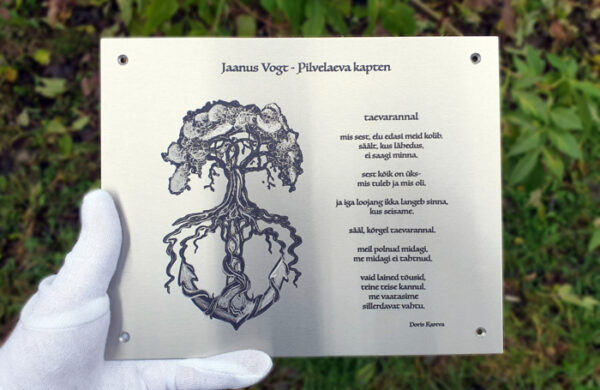 Jaanus Vogt - Pilvelaeva kapten
taevarannal
mis sest, elu edasi meid kolib,
säält, kus lähedus,
ei saagi minna.
sest kõik on üks-
mis tuleb ja mis oli.
ja iga loojang ikka langeb sinna,
kus seisame.
sääl, kõrgel taevarannal.
meil polnud midagi,
me midagi ei tahtnud.
vaid lained tõusid,
teine teise kannul,
me vaatasime
sillerdavat vahtu.
Doris Kareva